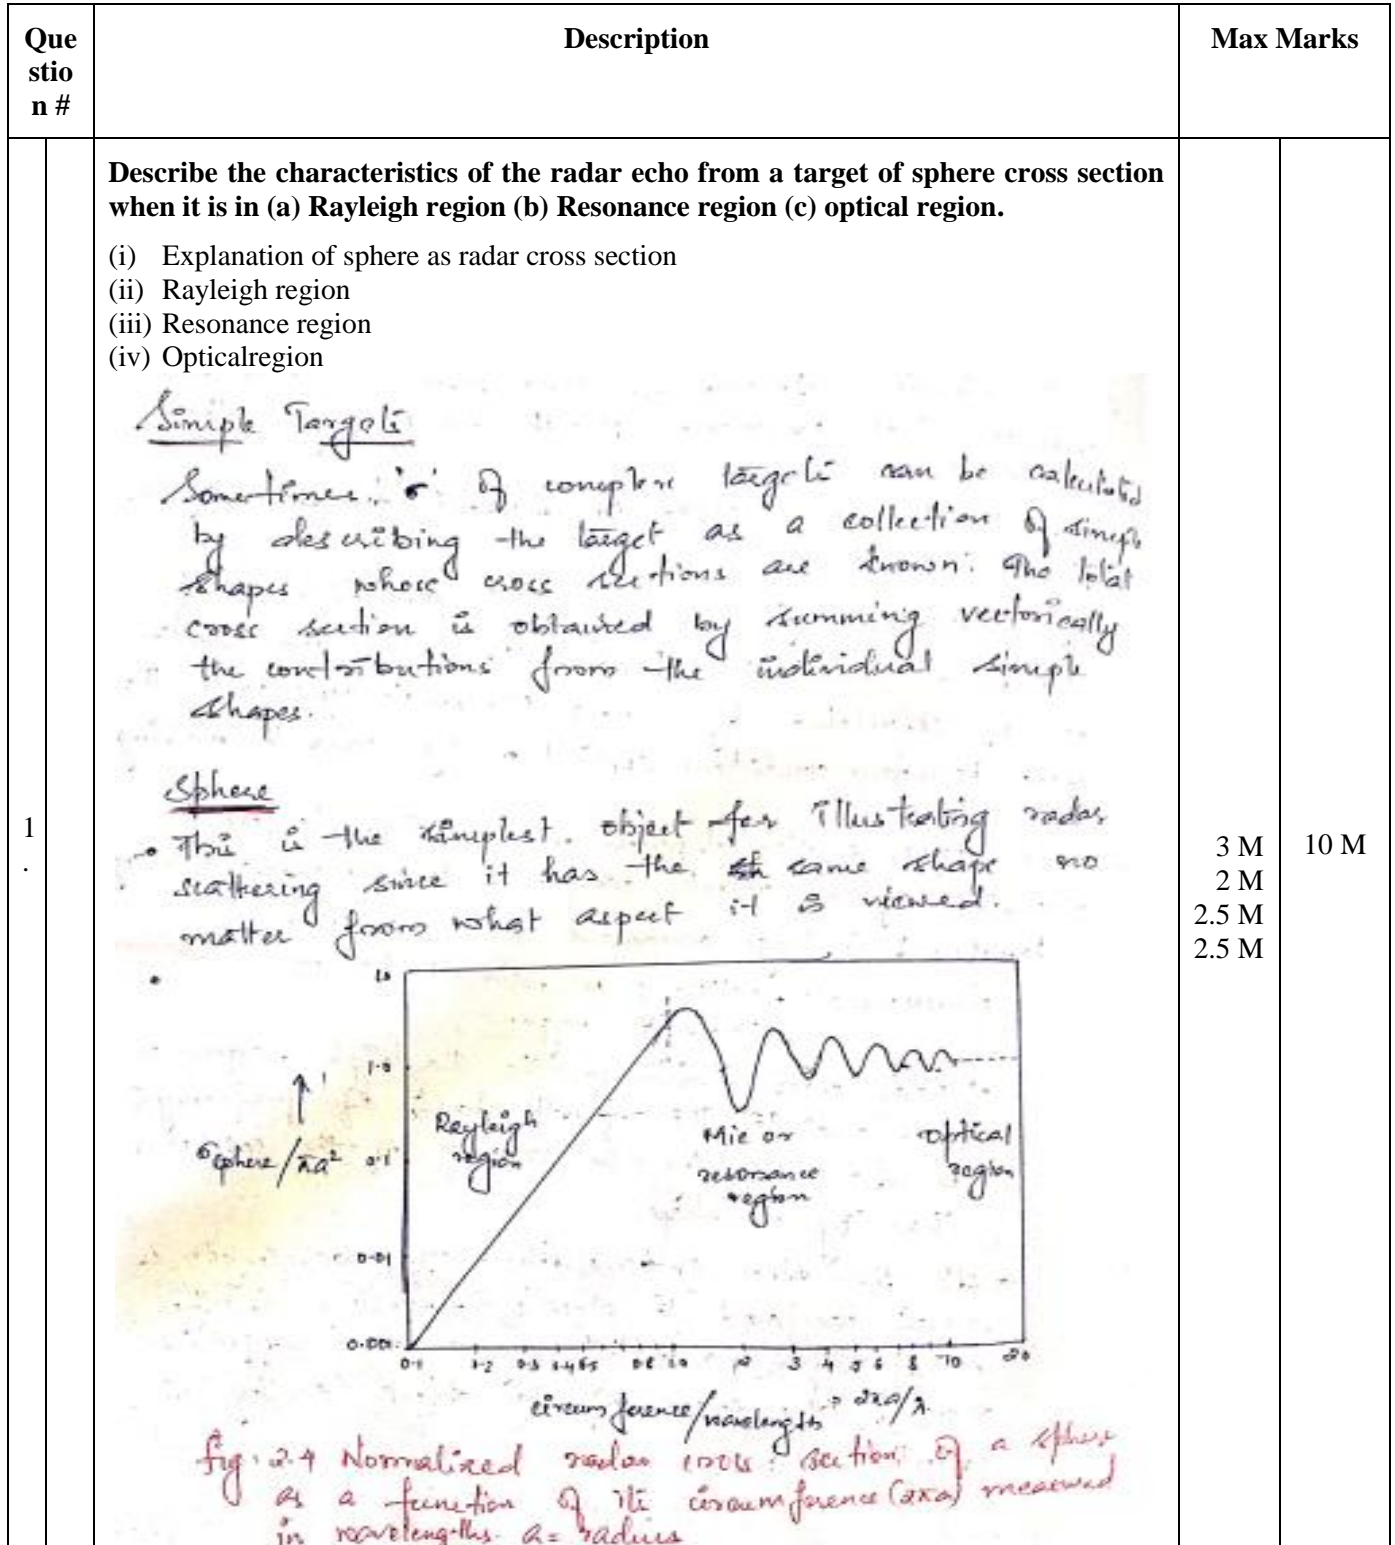 Que
stio
n #
Description
Max Marks
1
.
Describe the characteristics of the radar echo from a target of sphere cross section
when it is in (a) Rayleigh region (b) Resonance region (c) optical region.
(i) Explanation of sphere as radar cross section
(ii) Rayleigh region
(iii) Resonance region
(iv) Opticalregion
Simple Targets
Sometimes 'σ' of complex targets can be calculated
by describing the target as a collection of simple
shapes whose cross sections are known. The total
cross section is obtained by summing vectorically
the contributions from the individual simple
shapes.
Sphere
• This is the simplest object for illustrating radar
scattering since it has the same shape no
matter from what aspect it is viewed.
10
1.0
0.1
0.01
0.001
σsphere/πa²
Rayleigh
region
Mie or
resonance
region
optical
region
0.1 0.2 0.3 0.4 0.8 1.0 2 3 4 5 6 8 10 20
circumference/wavelength = 2πa/λ
fig. 2.4 Normalized radar cross section of a sphere
as a function of its circumference (2πa) measured
in wavelengths. a = radius
3 M
2 M
2.5 M
2.5 M
10 M